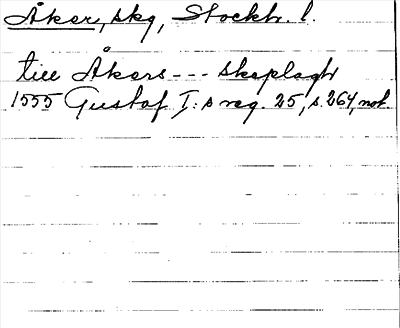 Åker, skg, Stockh. l.
till Åkers --- skeplagh
1555 Gustaf I:s reg. 25, s. 264, not